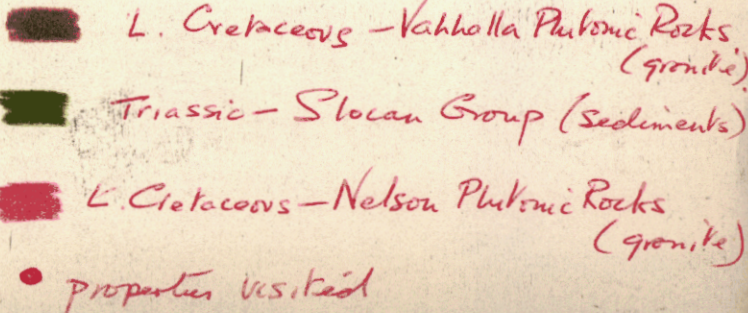 L. Cretaceous – Valhalla Plutonic Rocks
(granite)
Triassic – Slocan Group (sediments)
L. Cretaceous – Nelson Plutonic Rocks
(granite)
properties visited